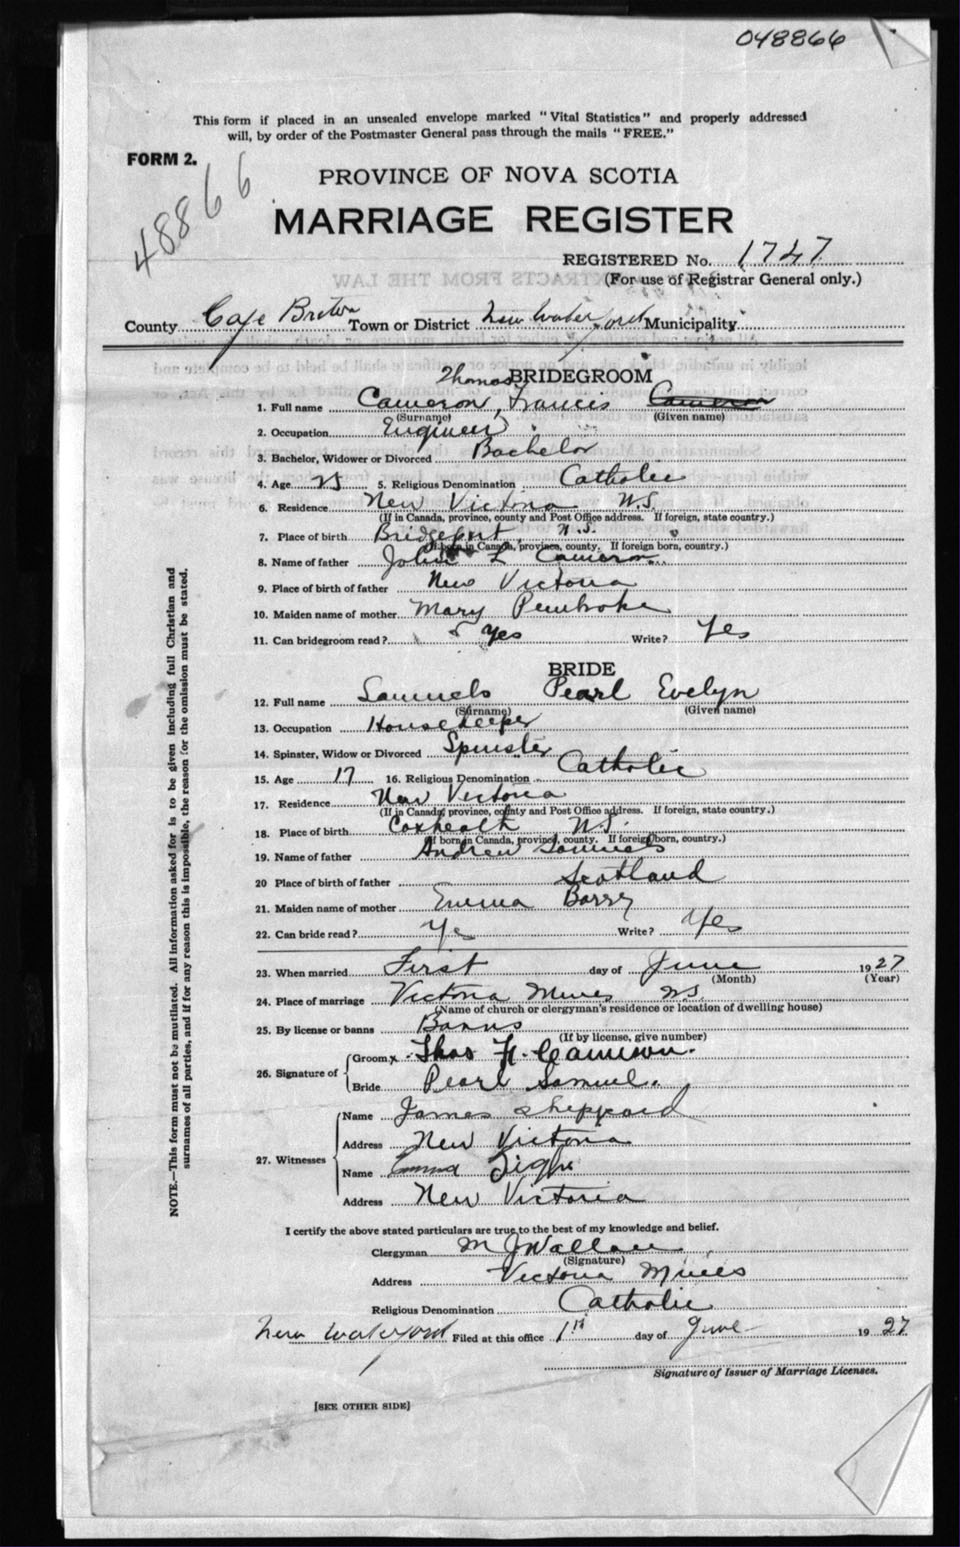 048866
This form if placed in an unsealed envelope marked "Vital Statistics" and properly addressed
will, by order of the Postmaster General pass through the mails "FREE."
FORM 2.
48866
PROVINCE OF NOVA SCOTIA
MARRIAGE REGISTER
REGISTERED No. 1747
(For use of Registrar General only.)
County Cape Breton Town or District New Waterford Municipality
BRIDEGROOM
Thomas
1. Full name Cameron, Francis Cameron
(Surname) (Given name)
2. Occupation Engineer
3. Bachelor, Widower or Divorced Bachelor
4. Age 25 5. Religious Denomination Catholic
6. Residence New Victoria N.S.
(If in Canada, province, county and Post Office address. If foreign, state country.)
7. Place of birth Bridgeport, N.S.
(If born in Canada, province, county. If foreign born, country.)
8. Name of father John L Cameron
9. Place of birth of father New Victoria
10. Maiden name of mother Mary Pembroke
11. Can bridegroom read? Yes Write? Yes
BRIDE
12. Full name Samuels Pearl Evelyn
(Surname) (Given name)
13. Occupation Housekeeper
14. Spinster, Widow or Divorced Spinster
15. Age 17 16. Religious Denomination Catholic
17. Residence New Victoria
(If in Canada, province, county and Post Office address. If foreign, state country.)
18. Place of birth Coxheath NS
(If born in Canada, province, county. If foreign born, country.)
19. Name of father Andrew Samuels
20 Place of birth of father Scotland
21. Maiden name of mother Emma Barry
22. Can bride read? Yes Write? Yes
23. When married First day of June 1927
(Month) (Year)
24. Place of marriage Victoria Mines NS
(Name of church or clergyman's residence or location of dwelling house)
25. By license or banns Banns
(If by license, give number)
26. Signature of Groom x Thos F. Cameron.
Bride Pearl Samuels
27. Witnesses Name James Sheppard
Address New Victoria
Name Emma
Address New Victoria
I certify the above stated particulars are true to the best of my knowledge and belief.
Clergyman M J Wallace
(Signature)
Address Victoria Mines
Religious Denomination Catholic
New Waterford Filed at this office 1st day of June 1927
Signature of Issuer of Marriage Licenses.
[SEE OTHER SIDE]
NOTE.—This form must not be mutilated. All information asked for is to be given including full Christian and
surnames of all parties, and if for any reason this is impossible, the reason for the omission must be stated.